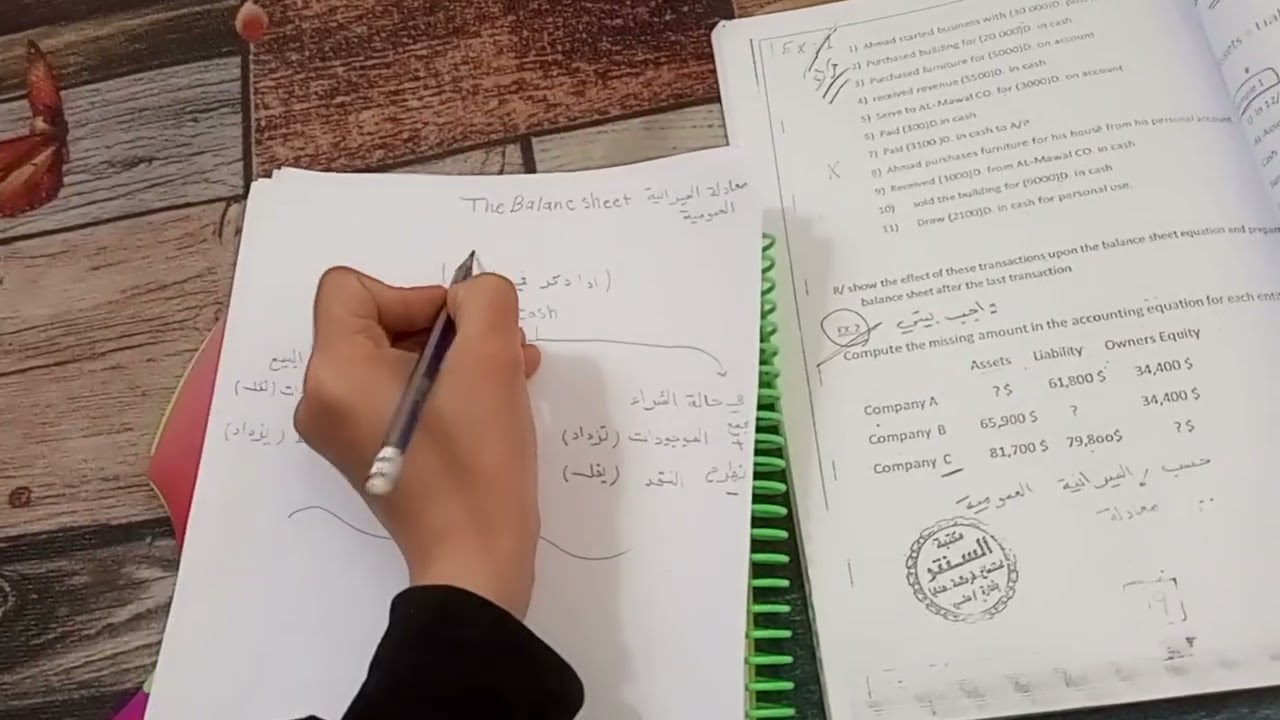 The Balanc sheet معادلة الميزانية
العمومية
(اذا ذكر في
cash
في حالة الشراء
نجمع + الموجودات (تزداد)
نطرح - النقد (يقل)
البيع
(تقل)
(يزداد)
EX: 1
1) Ahmad started business with (30 000)D.
2) Purchased building for (20 000)D. in cash
3) Purchased furniture for (5000)D. on account
4) received revenue (5500)D. in cash
5) Serve to AL-Mawal CO. for (3000)D. on account
6) Paid (300)D.in cash
7) Paid (3100 )D. in cash to A/P
X 8) Ahmad purshases furniture for his house from his personal account
9) Received (1000)D. from AL-Mawal CO. in cash
10) sold the building for (9000)D. in cash
11) Draw (2100)D. in cash for personal use.
R/ show the effect of these transactions upon the balance sheet equation and prepare
balance sheet after the last transaction
EX.2 واجب بيتي
Compute the missing amount in the accounting equation for each
Assets Liability Owners Equity
Company A ? $ 61,800 $ 34,400 $
Company B 65,900 $ ? 34,400 $
Company C 81,700 $ 79,800$ ? $
حسب الميزانية العمومية
معادلة
مكتبة
السنقر